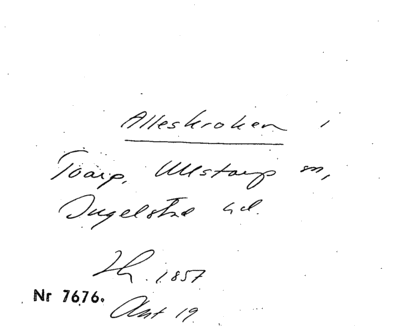 Alleskroken i
Toarp, Ullstorp m,
Ingelstad hd.
Lh. 1857
Nr 7676.
Ant 19